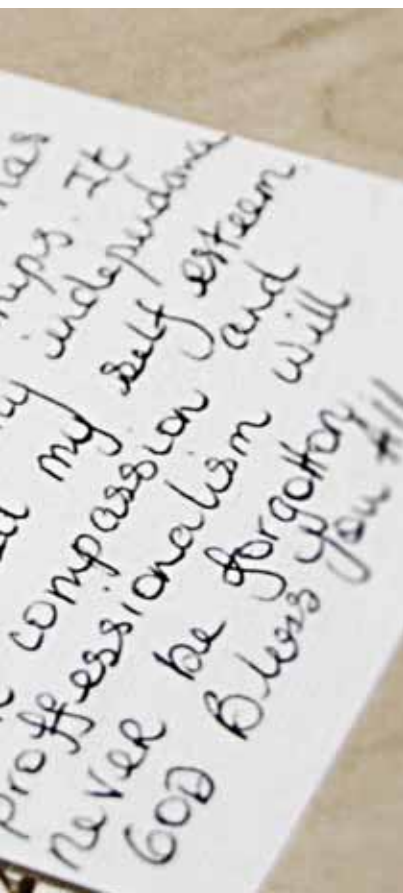 has
ships. It
my independance
my self esteem.
compassion and
proffessionalism will
never be forgotton.
GOD Bless you All